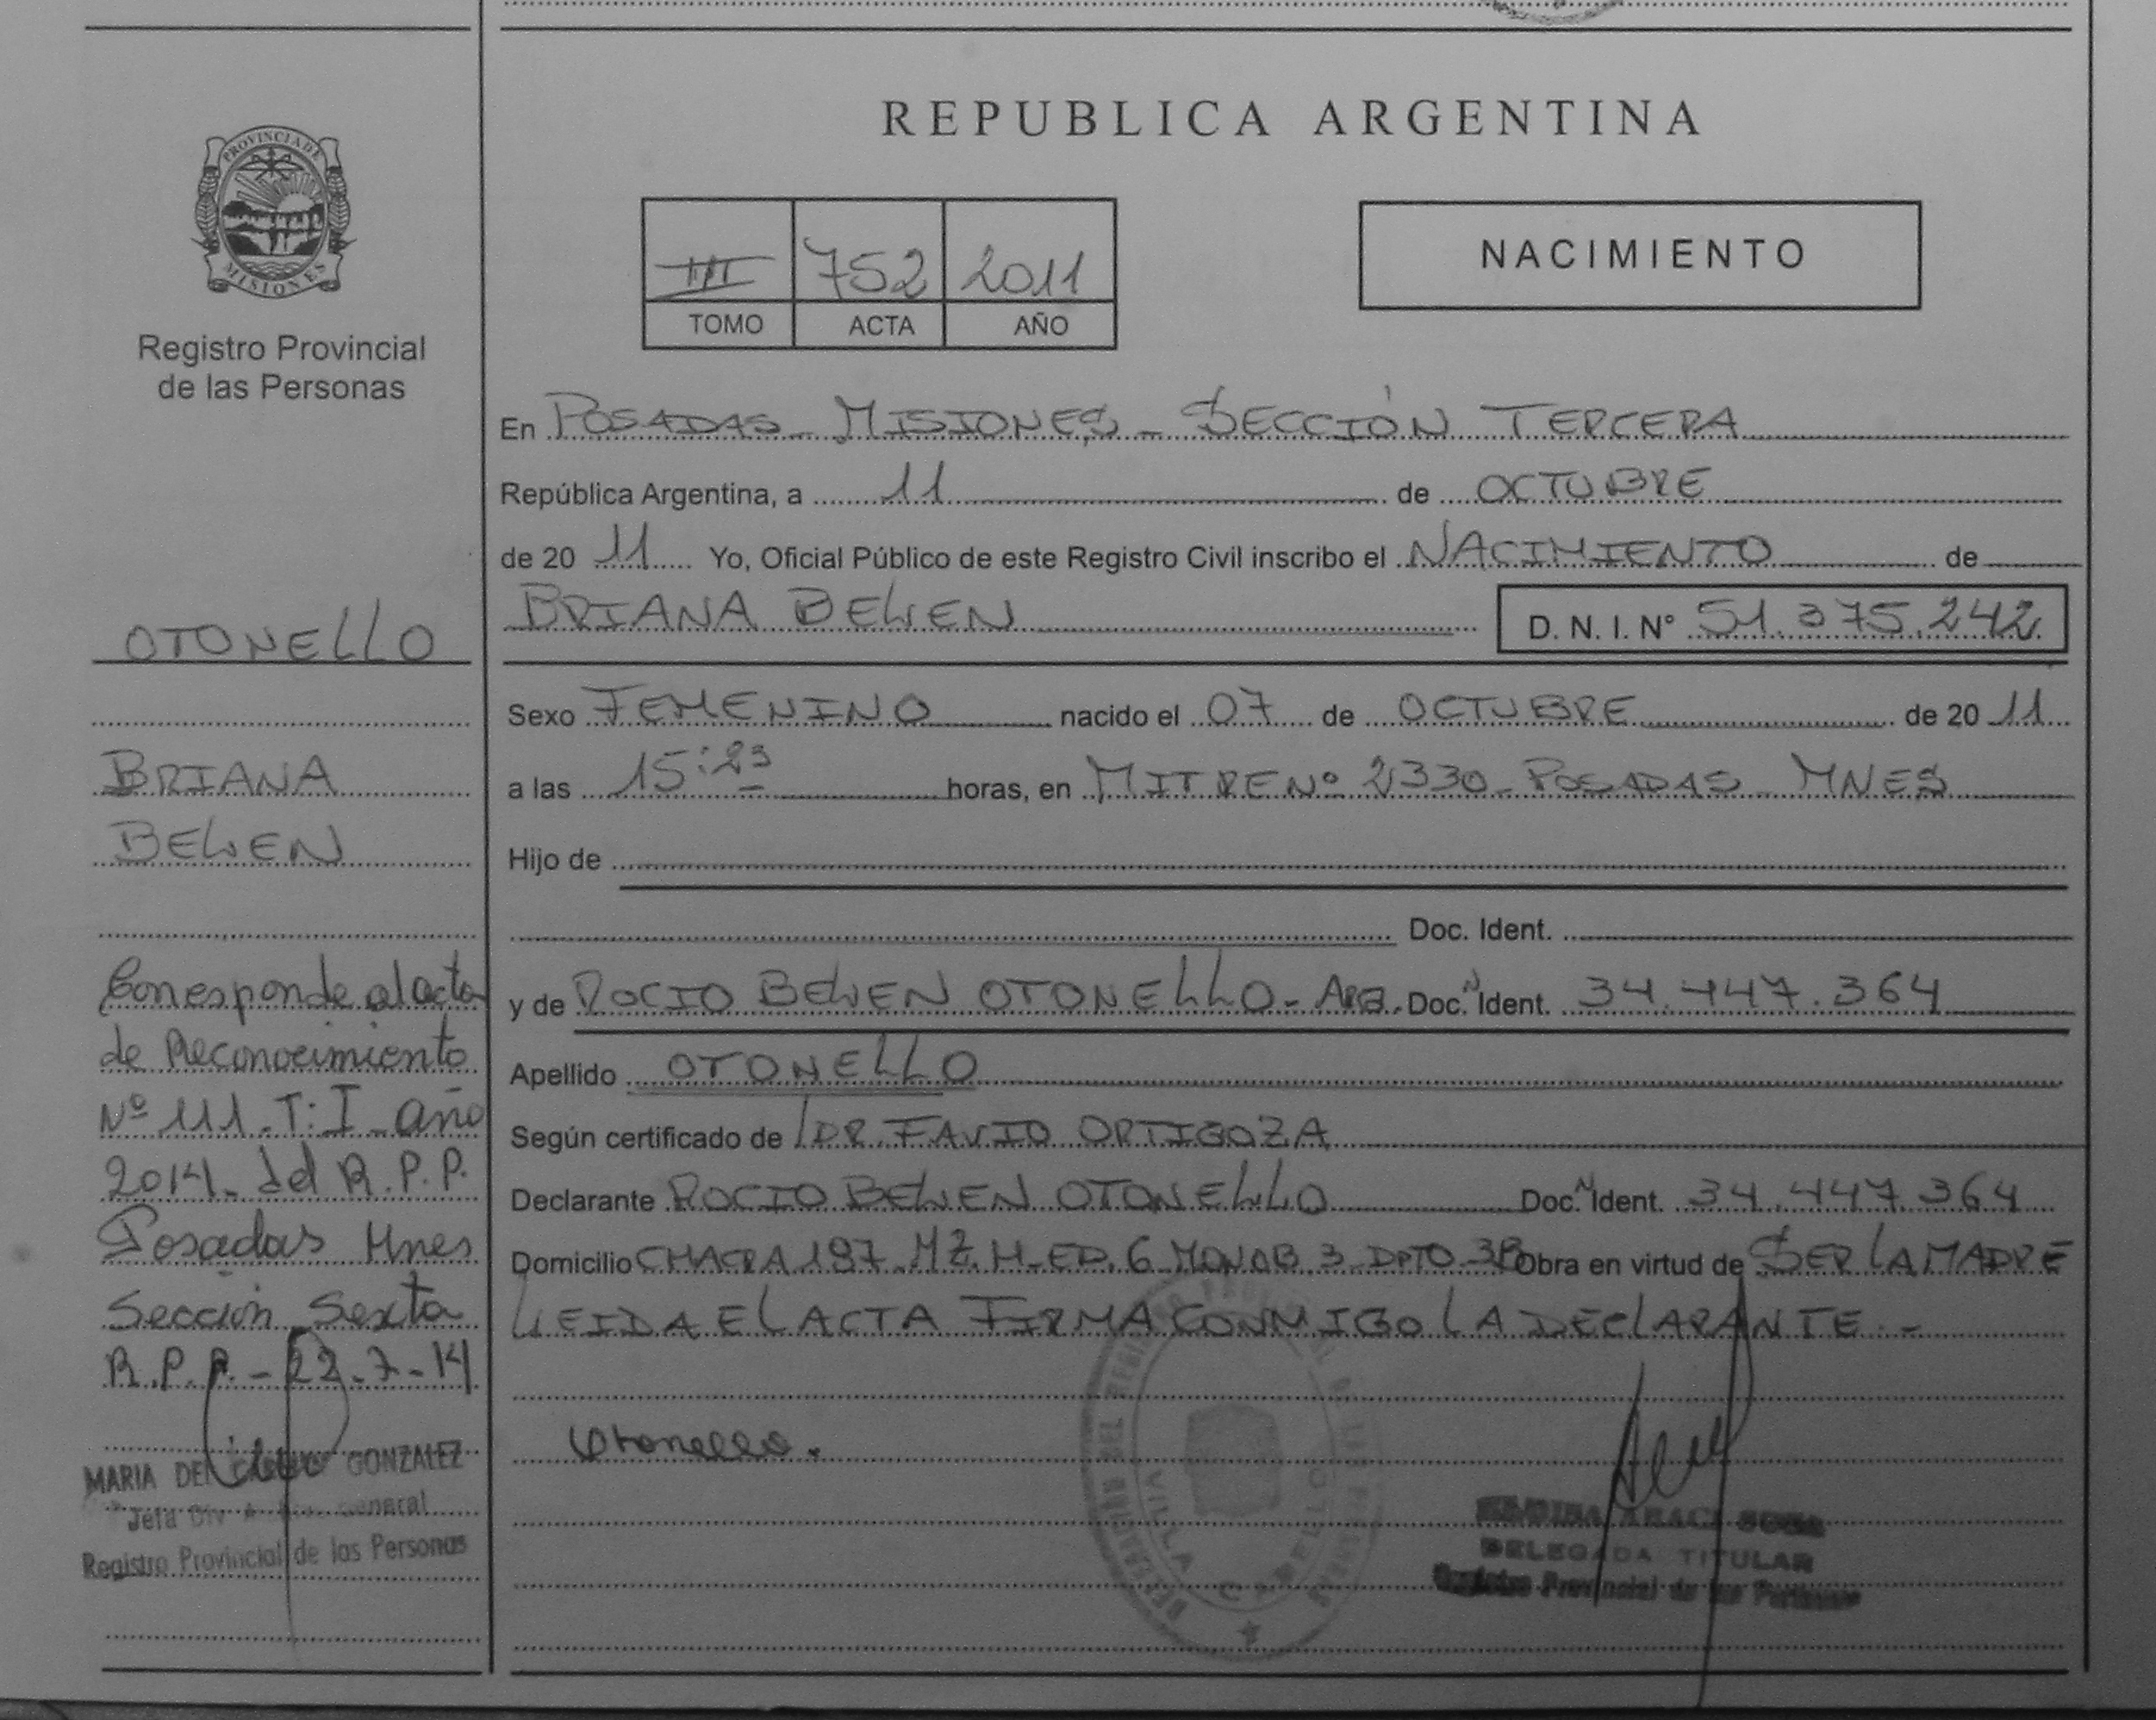 PROVINCIA DE
MISIONES
Registro Provincial
de las Personas
OTONELLO
BRIANA
BELEN
Corresponde al acta
de Reconocimiento
Nº 111 - T: I - año
2014 - del R.P.P.
Posadas Mnes
Sección Sexta
R.P.P. - 22-7-14
MARIA DEL GONZALEZ
Jefa Div General
Registro Provincial de las Personas
REPUBLICA ARGENTINA
III 752 2011
TOMO ACTA AÑO
NACIMIENTO
En POSADAS - MISIONES - SECCIÓN TERCERA
República Argentina, a 11 de OCTUBRE
de 20 11 Yo, Oficial Público de este Registro Civil inscribo el NACIMIENTO de
BRIANA BELEN D. N. I. Nº 51.375.242
Sexo FEMENINO nacido el 07 de OCTUBRE de 20 11
a las 15:23 horas, en MITRE Nº 2330 - POSADAS - MNES
Hijo de
Doc. Ident.
y de ROCIO BELEN OTONELLO - ARG. Doc. N Ident. 34.447.364
Apellido OTONELLO
Según certificado de DR. FAVIO ORTIGOZA
Declarante ROCIO BELEN OTONELLO Doc. N Ident. 34.447.364
Domicilio CHACRA 197 MZ. H - ED. 6 MONOB 3 - DPTO - 3B Obra en virtud de SER LA MADRE
LEIDA EL ACTA FIRMA CONMIGO LA DECLARANTE -
Otonello.
VILLA CABELLO
DELEGADA TITULAR
Registro Provincial de las Personas